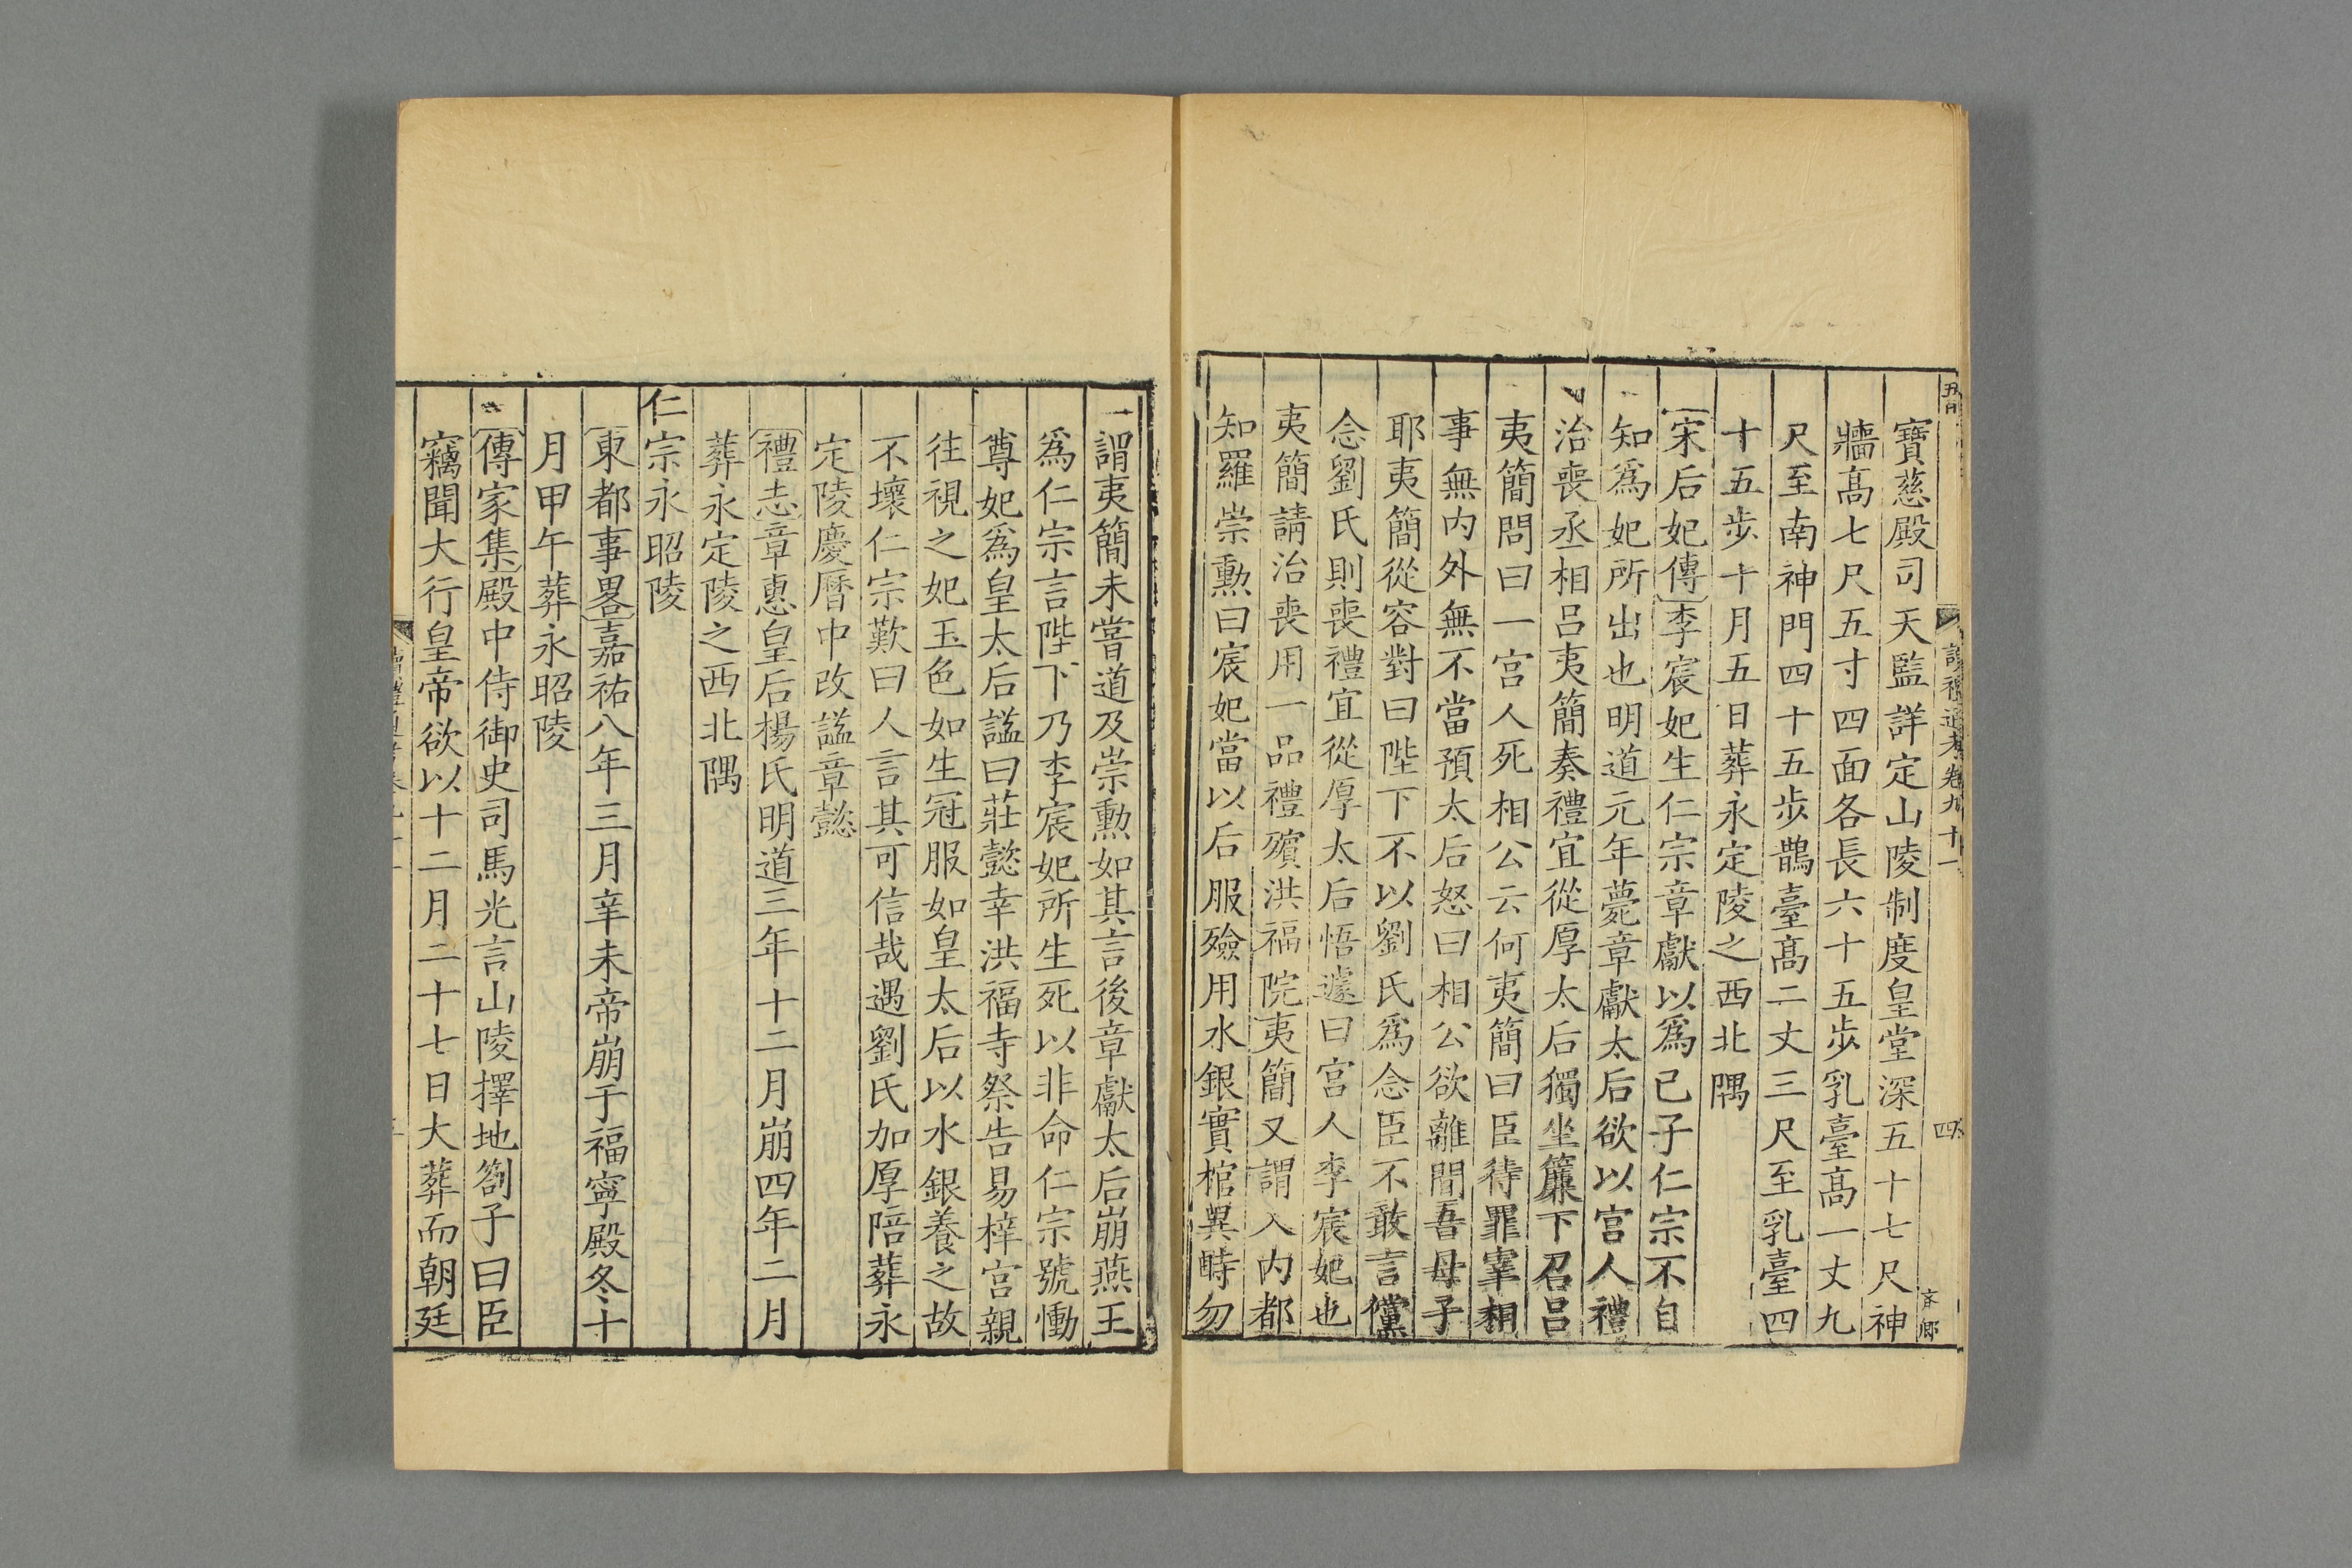 寶慈殿司天監詳定山陵制度皇堂深五十七尺神
牆髙七尺五寸四面各長六十五步乳臺髙一丈九
尺至南神門四十五步鵲臺髙二丈三尺至乳臺四
十五步十月五日葬永定陵之西北隅
〔宋后妃傳〕李宸妃生仁宗章獻以爲已子仁宗不自
知爲妃所出也明道元年薨章獻太后欲以宫人禮
治喪丞相吕夷簡奏禮宜從厚太后獨坐簾下召吕
夷簡問曰一宫人死相公云何夷簡曰臣待罪宰相
事無内外無不當預太后怒曰相公欲離間吾母子
耶夷簡從容對曰陛下不以劉氏爲念臣不敢言儻
念劉氏則喪禮宜從厚太后悟遽曰宫人李宸妃也
夷簡請治喪用一品禮殯洪福院夷簡又謂入内都
知羅崇勲曰宸妃當以后服殮用水銀實棺異時勿
謂夷簡未嘗道及崇勲如其言後章獻太后崩燕王
爲仁宗言陛下乃李宸妃所生死以非命仁宗號慟
尊妃爲皇太后謚曰莊懿幸洪福寺祭告易梓宫親
往視之妃玉色如生冠服如皇太后以水銀養之故
不壞仁宗歎曰人言其可信哉遇劉氏加厚陪葬永
定陵慶曆中改謚章懿
〔禮志〕章惠皇后楊氏明道三年十二月崩四年二月
葬永定陵之西北隅
仁宗永昭陵
〔東都事畧〕嘉祐八年三月辛未帝崩于福寧殿冬十
月甲午葬永昭陵
〔傳家集〕殿中侍御史司馬光言山陵擇地劄子曰臣
竊聞大行皇帝欲以十二月二十七日大葬而朝廷
讀禮通考卷九十一
四